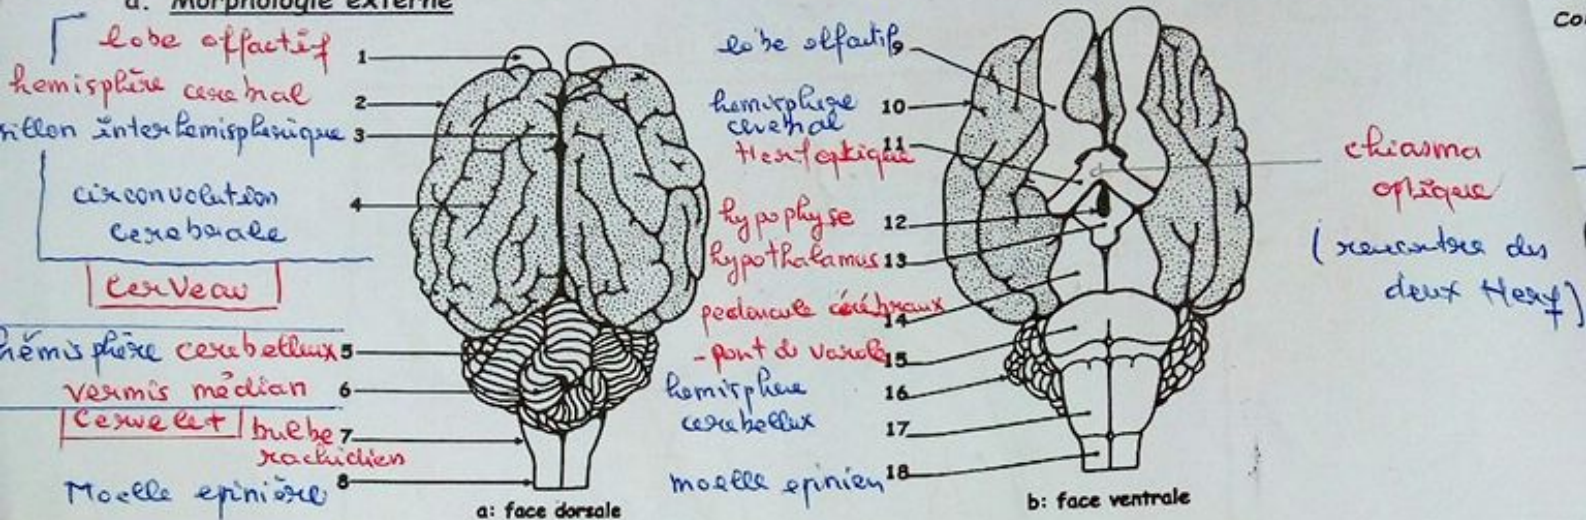 a. Morphologie externe
lobe offactif 1
hemisphère cerebral 2
sillon interhemispherique 3
circonvolution 4
cerebrale
Cerveau
hémisphère cerebelleux 5
vermis médian 6
Cervelet
bulbe 7
rachidien
Moelle epinière 8
a: face dorsale
lobe olfactif 9
hemisphere 10
cerebral
Nerf optique 11
hypophyse 12
hypothalamus 13
pedoncule cérébraux 14
- pont de varole 15
hemisphere 16
cerebellux
17
moelle epinien 18
b: face ventrale
chiasma
optique
(rencontre des
deux Nerf)